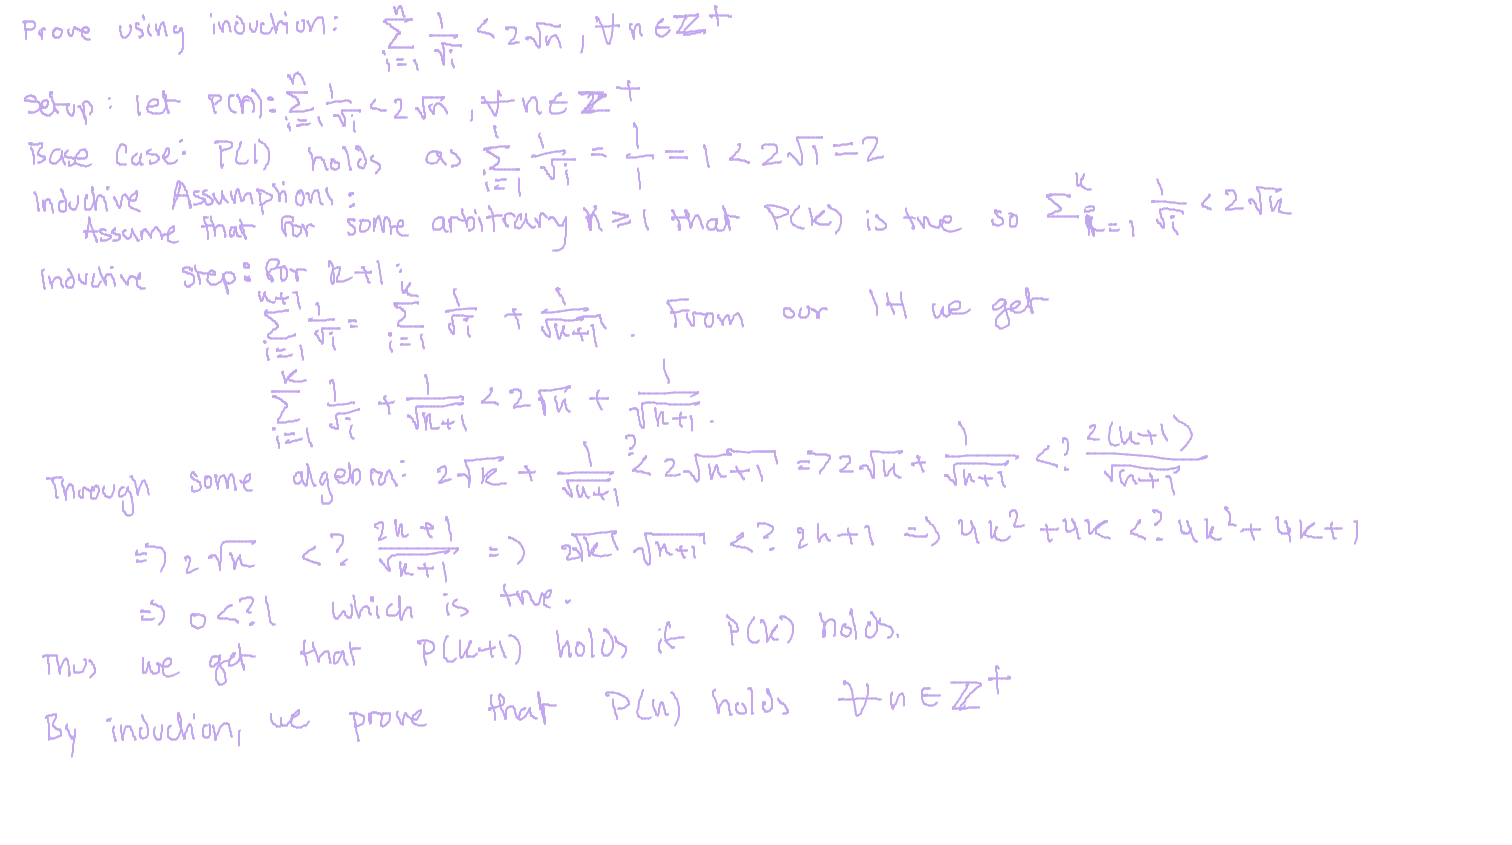 Prove using induction: ∑_{i=1}^{n} 1/√i < 2√n, ∀n∈ℤ⁺
Setup: let P(n): ∑_{i=1}^{n} 1/√i < 2√n, ∀n∈ℤ⁺
Base Case: P(1) holds as ∑_{i=1}^{1} 1/√i = 1/1 = 1 < 2√1 = 2
Inductive Assumptions:
Assume that for some arbitrary k ≥ 1 that P(k) is true so ∑_{i=1}^{k} 1/√i < 2√k
Inductive Step: for k+1:
∑_{i=1}^{k+1} 1/√i = ∑_{i=1}^{k} 1/√i + 1/√(k+1). From our IH we get
∑_{i=1}^{k} 1/√i + 1/√(k+1) < 2√k + 1/√(k+1).
Through some algebra: 2√k + 1/√(k+1) <? 2√(k+1) => 2√k + 1/√(k+1) <? 2(k+1)/√(k+1)
=> 2√k <? (2k+1)/√(k+1) => 2√k √(k+1) <? 2k+1 => 4k² + 4k <? 4k² + 4k + 1
=> 0 <? 1 which is true.
Thus we get that P(k+1) holds if P(k) holds.
By induction, we prove that P(n) holds ∀n∈ℤ⁺